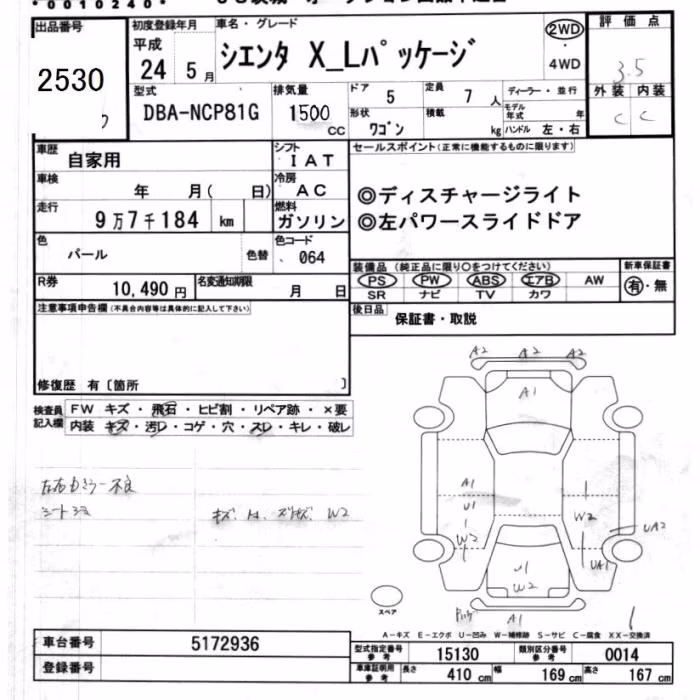 *0010240*
出品番号
2530
初度登録年月
平成
24 5月
車名・グレード
シエンタ X_Lパッケージ
2WD
4WD
評価点
3.5
外装 内装
C C
型式
DBA-NCP81G
排気量
1500
CC
ドア
5
定員
7人
形状
ワゴン
積載
kg
ディーラー・並行
モデル年式 年
ハンドル 左・右
車歴
自家用
シフト
IAT
車検
年 月( 日)
冷房
AC
走行
9万7千184 km
燃料
ガソリン
色
パール
色替
色コード
064
R券
10,490円
名変通知期限
月 日
セールスポイント(正常に機能するものに限ります)
◎ディスチャージライト
◎左パワースライドドア
装備品(純正品に限り○をつけてください)
PS PW ABS エアB AW
SR ナビ TV カワ
新車保証書
有・無
後日品
保証書・取説
注意事項申告欄(不具合内容等は具体的に記入して下さい)
修復歴 有〔箇所 〕
検査員記入欄
FW キズ・飛石・ヒビ割・リペア跡・×要
内装 キズ・汚レ・コゲ・穴・スレ・キレ・破レ
A2 A2 A2
A1
A1
U1
W2
W2
UA2
UA1
U1
W2
A1
W2
スペア
A-キズ E-エクボ U-凹み W-補修跡 S-サビ C-腐食 XX-交換済
車台番号
5172936
登録番号
型式指定番号
参考
15130
類別区分番号
参考
0014
車庫証明用
参考
長さ
410 cm
幅
169 cm
高さ
167 cm